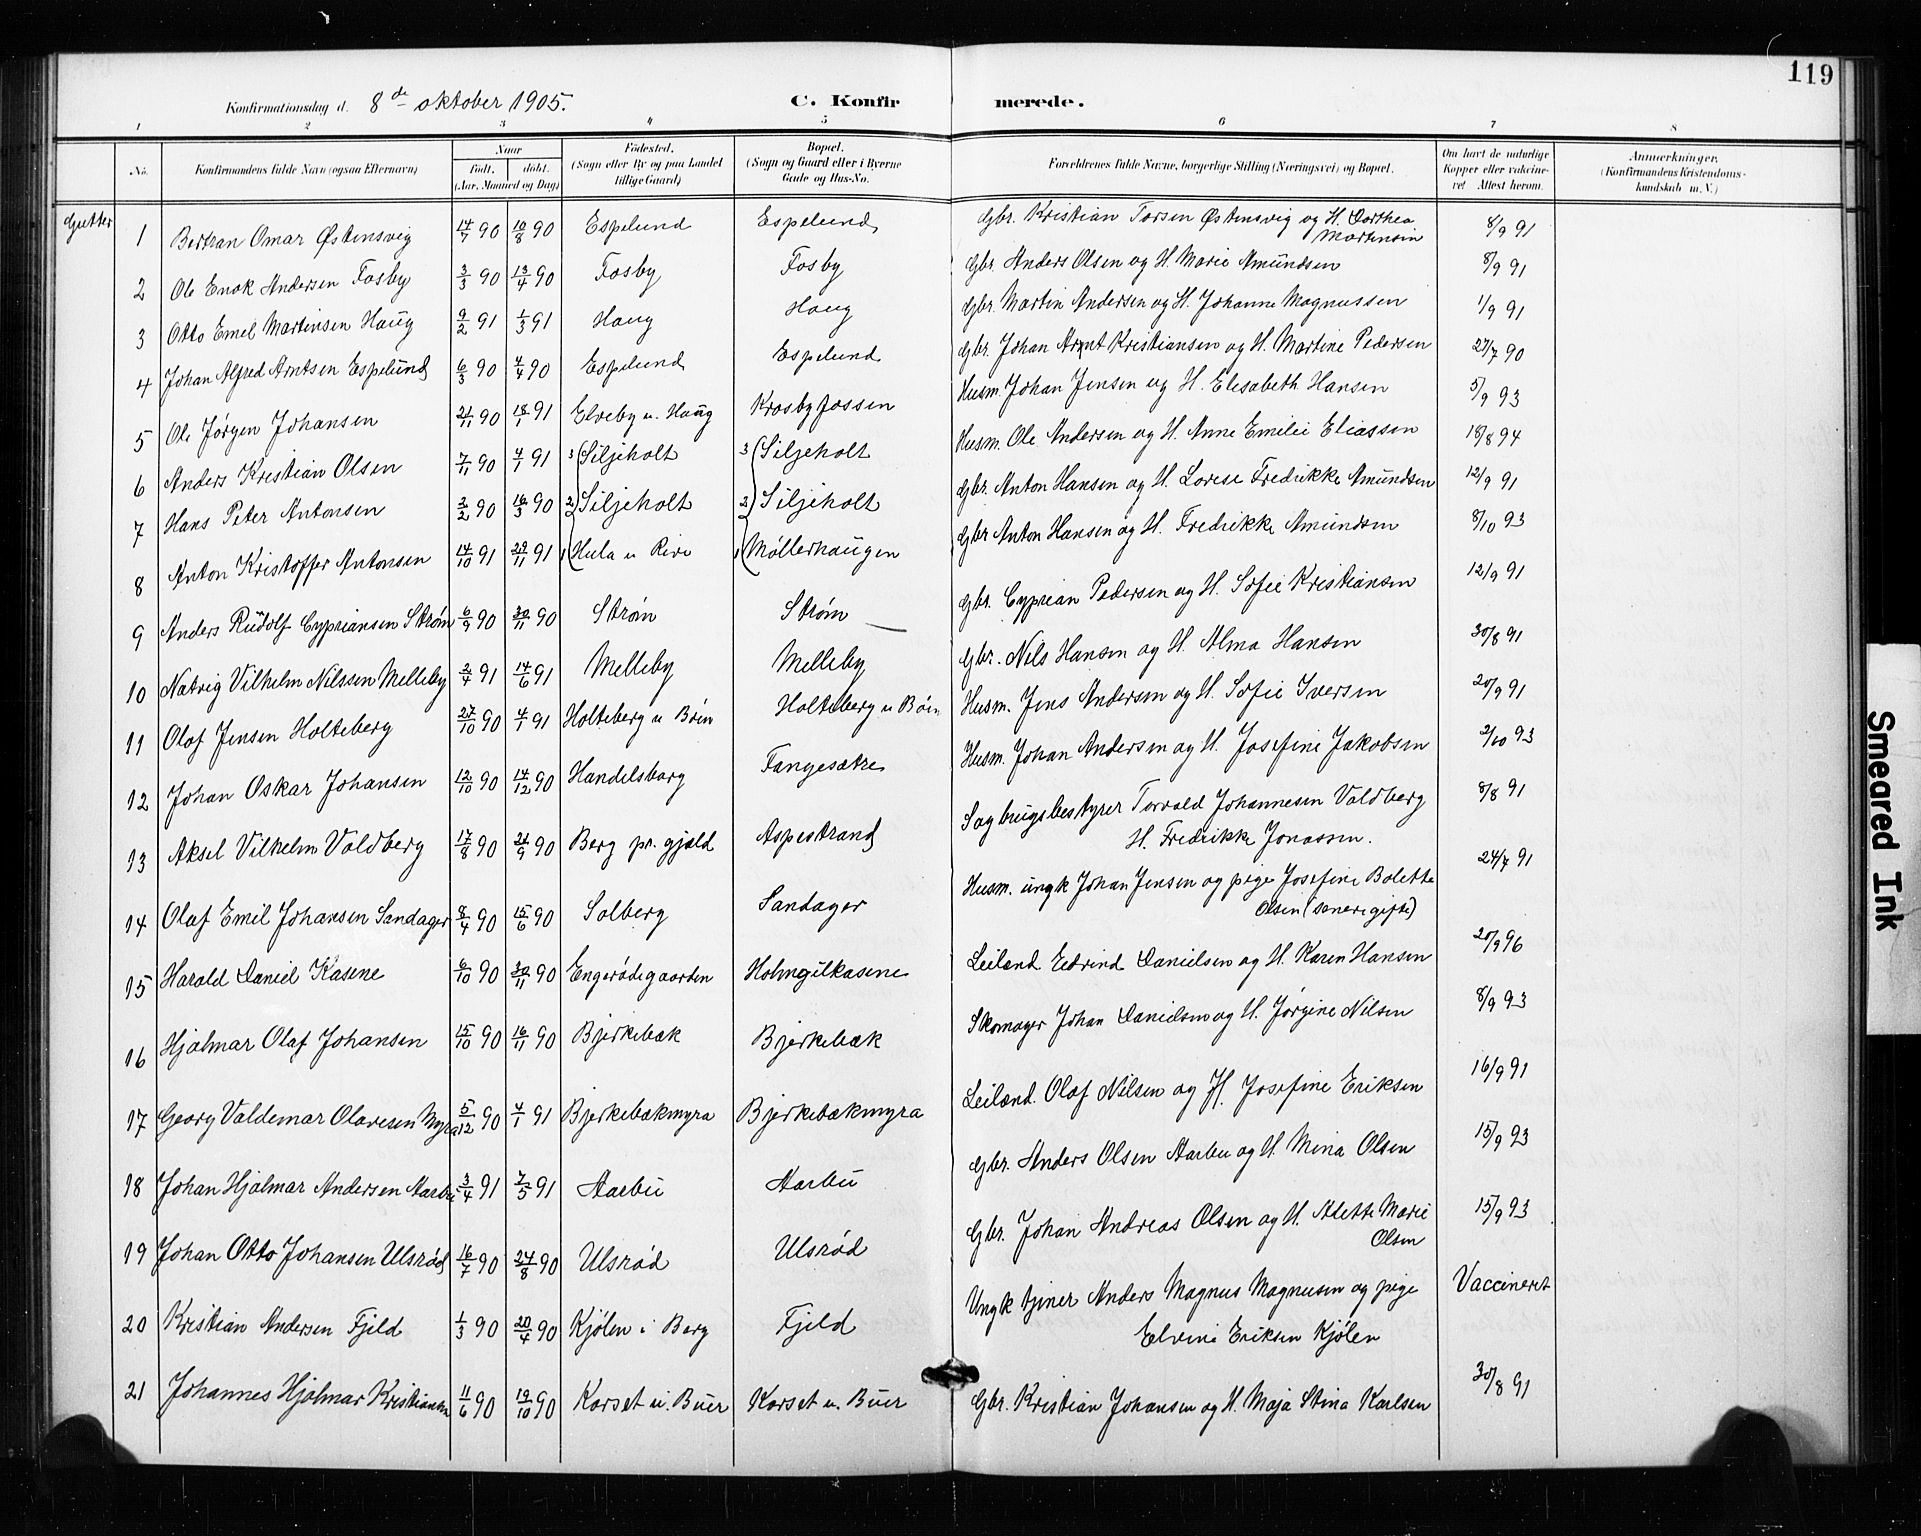 119
Konfirmationsdag d. 8de oktober 1905. C. Konfirmerede.
1 2 3 4 5 6 7 8
No. Konfirmandens fulde Navn (ogsaa Efternavn) Naar født. døbt. (Aar, Maaned og Dag) Fødested. (Sogn eller By og paa Landet tillige Gaard) Bopæl. (Sogn og Gaard eller i Byerne Gade og Hus-No. Forældrenes fulde Navne, borgerlige Stilling (Næringsvei) og Bopæl. Om havt de naturlige Kopper eller vakcineret Attest herom. Anmærkninger. (Konfirmandens Kristendomskundskab m. V.)
Gutter
1 Bertran Omar Østensvig 14/7 90 10/8 90 Espelund Espelund Gbr. Kristian Torsen Østensvig og H. Dorthea Martensin 8/9 91
2 Ole Enok Andersen Fosby 3/3 90 13/4 90 Fosby Fosby Gbr. Anders Olsen og H. Marie Amundsen 8/9 91
3 Otto Emil Martinsen Haug 9/2 91 1/3 91 Haug Haug Gbr. Martin Andersen og H. Johanne Magnussen 1/9 91
4 Johan Alfred Arntsen Espelund 6/3 90 4/4 90 Espelund Espelund Gbr. Johan Arnt Kristiansen og H. Martine Pedersen 27/7 90
5 Ole Jørgen Johansen 21/11 90 18/1 91 Elveby u. Haug Krosby fossen Husm. Johan Jensen og H. Elisabeth Hansen 5/9 93
6 Anders Kristian Olsen 7/11 90 4/1 91 3 Siljeholt 3 Siljeholt Husm. Ole Andersen og H. Anne Emilie Eliassen 18/8 94
7 Hans Peter Antonsen 2/2 90 16/3 90 2 Siljeholt 2 Siljeholt Gbr. Anton Hansen og H. Lovise Fredrikke Amundsen 12/9 91
8 Anton Kristoffer Antonsen 14/10 91 29/11 91 1 Hula u Rive 1 Møllerhaugen Gbr Anton Hansen og H. Fredrikke Amundsen 8/10 93
9 Anders Rudolf Cypriansen Strøm 6/9 90 30/11 90 Strøm Strøm Gbr. Cyprian Pedersen og H. Sofie Kristiansen 12/9 91
10 Natvig Vilhelm Nilssen Melleby 2/4 91 14/6 91 Melleby Melleby Gbr. Nils Hansen og H. Alma Hansen 30/8 91
11 Olaf Jensen Holteberg 27/10 90 4/1 91 Holteberg u Bøen Holteberg u Bøen Husm. Jens Andersen og H. Sofie Iversen 20/9 91
12 Johan Oskar Johansen 12/10 90 14/12 90 Handelsborg Fangesætre Husm. Johan Andersen og H. Josefine Jakobsen 2/10 93
13 Aksel Vilhelm Voldberg 17/8 90 21/9 90 Berg pr. gjæld Aspestrand Sagbrugsbestyrer Torvald Johannesen Voldberg H. Fredrikke Jonassen. 8/8 91
14 Olaf Emil Johansen Sandager 8/4 90 15/6 90 Solberg Sandager Husm. ungk Johan Jensen og pige Josefine Bolette Olsen (senere gifte) 24/7 91
15 Harald Daniel Kasene 6/10 90 30/11 90 Engerødegaarden Holmgilkasene Leilænd. Edvind Danielsen og H. Karen Hansen 20/9 96
16 Hjalmar Olaf Johansen 15/10 90 16/11 90 Bjerkebæk Bjerkebæk Skomager Johan Danielsen og H. Jørgine Nilsen 8/9 93
17 Georg Valdemar Olavesen Myra 5/12 90 4/1 91 Bjerkebækmyra Bjerkebækmyra Leilænd. Olaf Nilsen og H. Josefine Eriksen 16/9 91
18 Johan Hjalmar Andersen Aarbu 3/4 91 7/5 91 Aarbu Aarbu Gbr. Anders Olsen Aarbu og H. Mina Olsen 15/9 93
19 Johan Otto Johansen Ulsrød 16/7 90 24/8 90 Ulsrød Ulsrød Gbr. Johan Andreas Olsen og H. Alette Marie Olsen 15/9 93
20 Kristian Andersen Fjeld 1/3 90 20/4 90 Kjølen i Berg Fjeld Ungk tjener Anders Magnus Magnusen og pige Elvine Eriksen Kjølen Vaccineret
21 Johannes Hjalmar Kristiansen 11/6 90 12/10 90 Korset u. Buer Korset u. Buer Gbr. Kristian Johansen og H. Maja Stina Karlsen 30/8 91
Smeared Ink